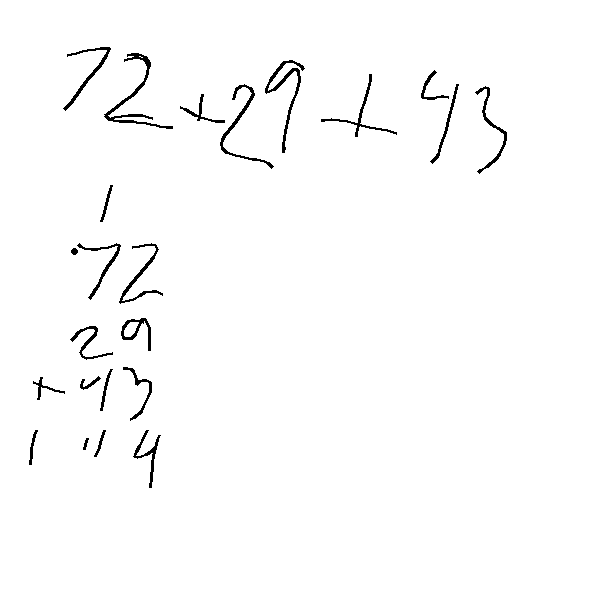 72+29+43
1
72
29
+43
1114